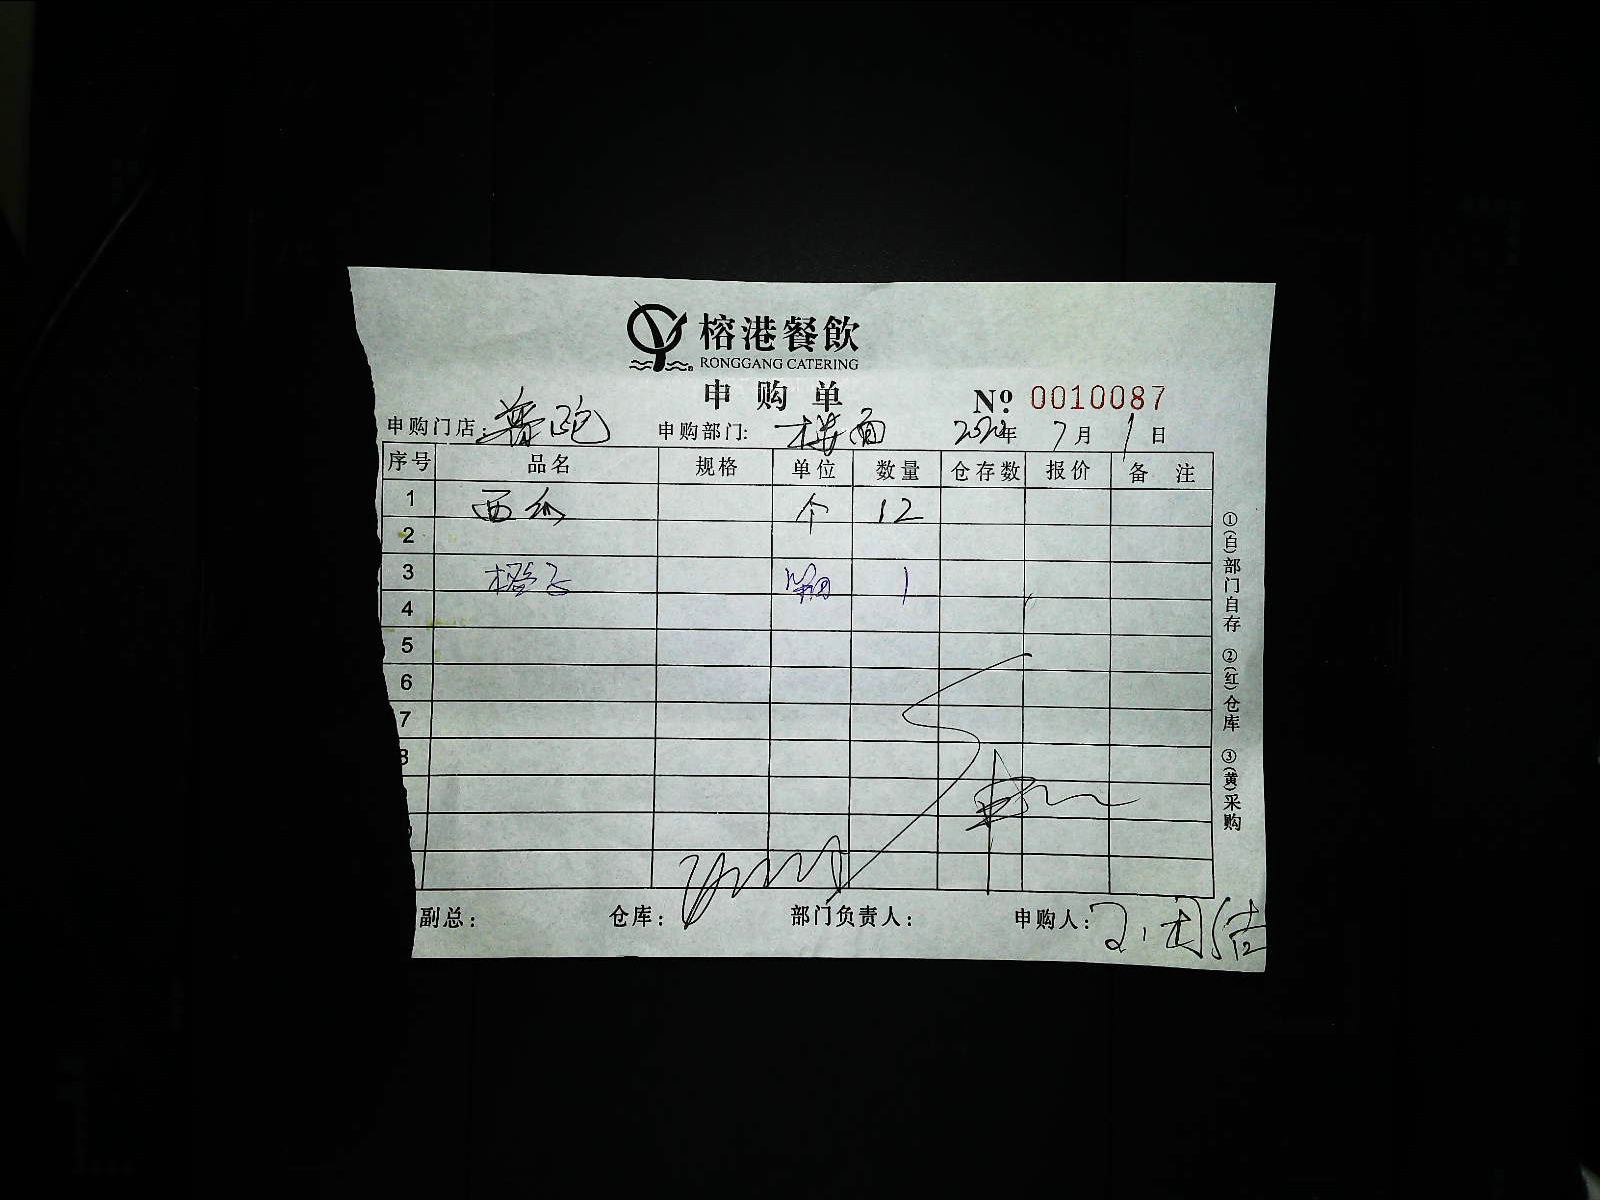 榕港餐飲
RONGGANG CATERING
申购单
№ 0010087
申购门店: 申购部门: 楼面 年 7 月 1 日
序号 品名 规格 单位 数量 仓存数 报价 备 注
1 西瓜 个 12
2
3 橙子 箱 1
4
5
6
7
8
副总: 仓库: 部门负责人: 申购人:
①(白)部门自存 ②(红)仓库 ③(黄)采购